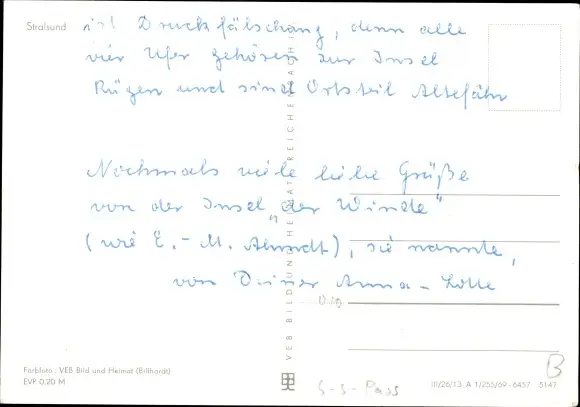 Stralsund ist Druckfälschung, denn alle
vier Ufer gehören zur Insel
Rügen und sind Ortsteil Altefähr
Nochmals viele liebe Grüße
von der Insel „der Winde"
(wie E.-M. Arndt), sie nannte,
von Deiner Anna-Lotte
VEB BILD UND HEIMAT REICHENBACH I.
Farbfoto: VEB Bild und Heimat (Brillhardt)
EVP 0,20 M
S-S-Pass
III/26/13 A 1/255/69-6457 5147
B